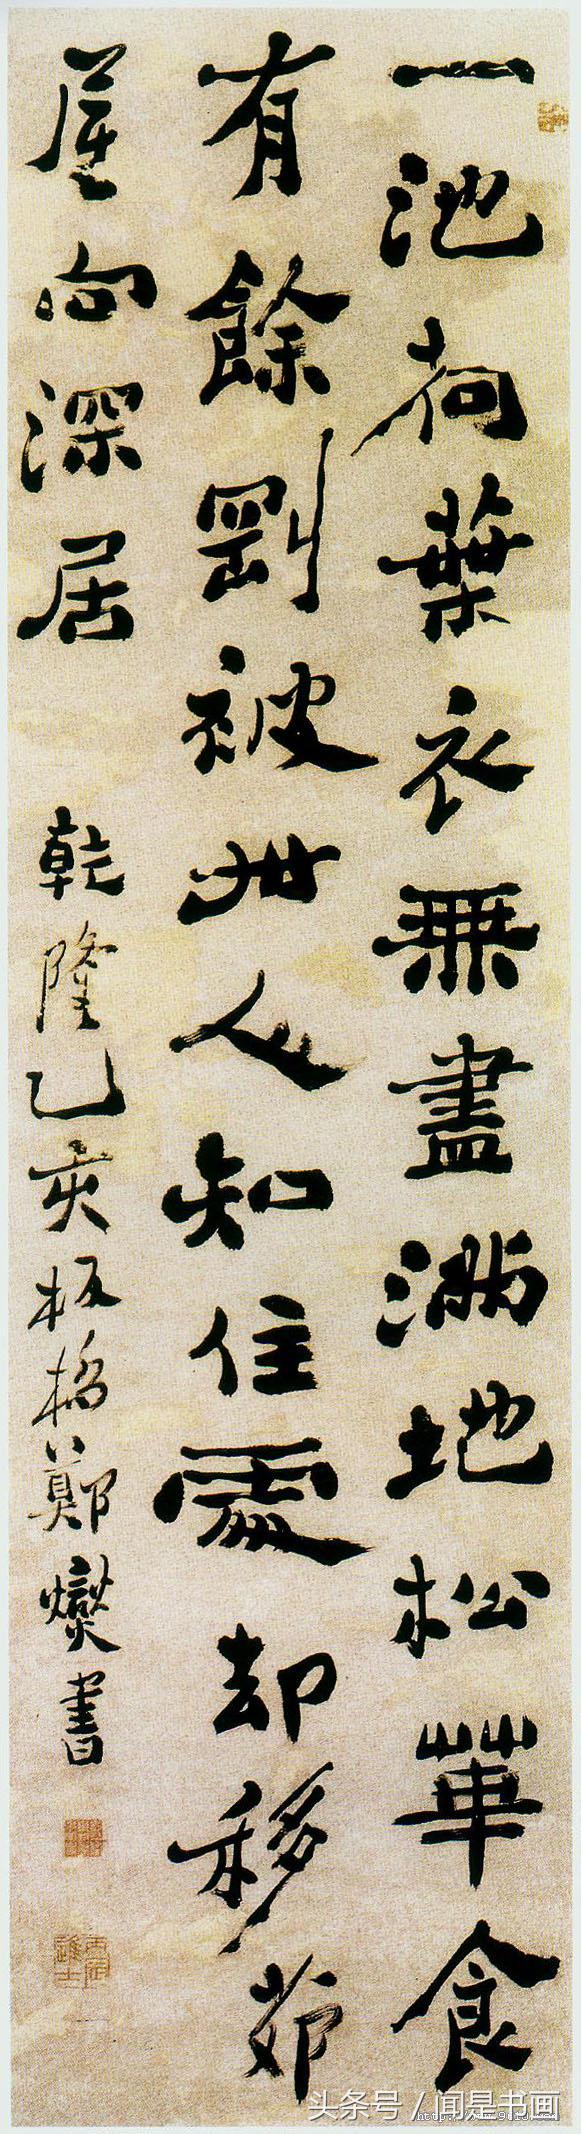 一池荷葉衣無盡滿地松華食
有餘剛被世人知住處却移茆
屋向深居
乾隆乙亥板橋鄭燮書
头条号 / 闻是书画